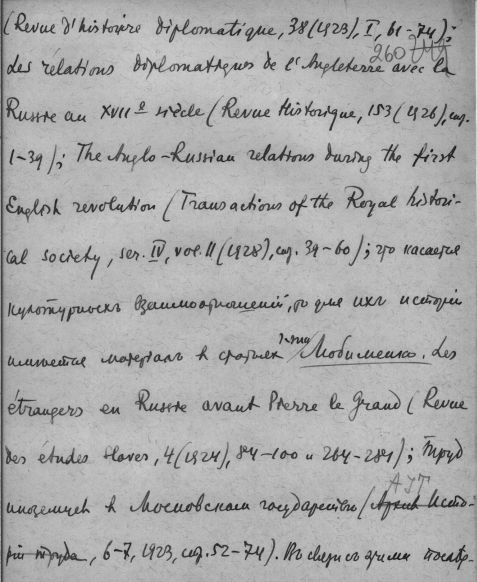 (Revue d'histoire diplomatique, 38 (1923), I, 61-74);
260
Les relations diplomatiques de l'Angleterre avec la
Russie au XVII e siècle (Revue Historique, 153 (1926), стр.
1-39); The Anglo-Russian relations during the first
English revolution (Transactions of the Royal histori-
cal society, ser. IV, vol. 11 (1928), стр. 39-60); что касается
культурныхъ взаимоотношений, то для ихъ исторiи
имеется матерiалъ в статьях г-жи Любименко. Les
étrangers en Russie avant Pierre le Grand (Revue
des études slaves, 4 (1924), 84-100 и 264-281); Труд
иноземцев в Московскомъ государстве (Архив Исто-
рiи труда, 6-7, 1923, стр. 52-74). Въ связи съ этими